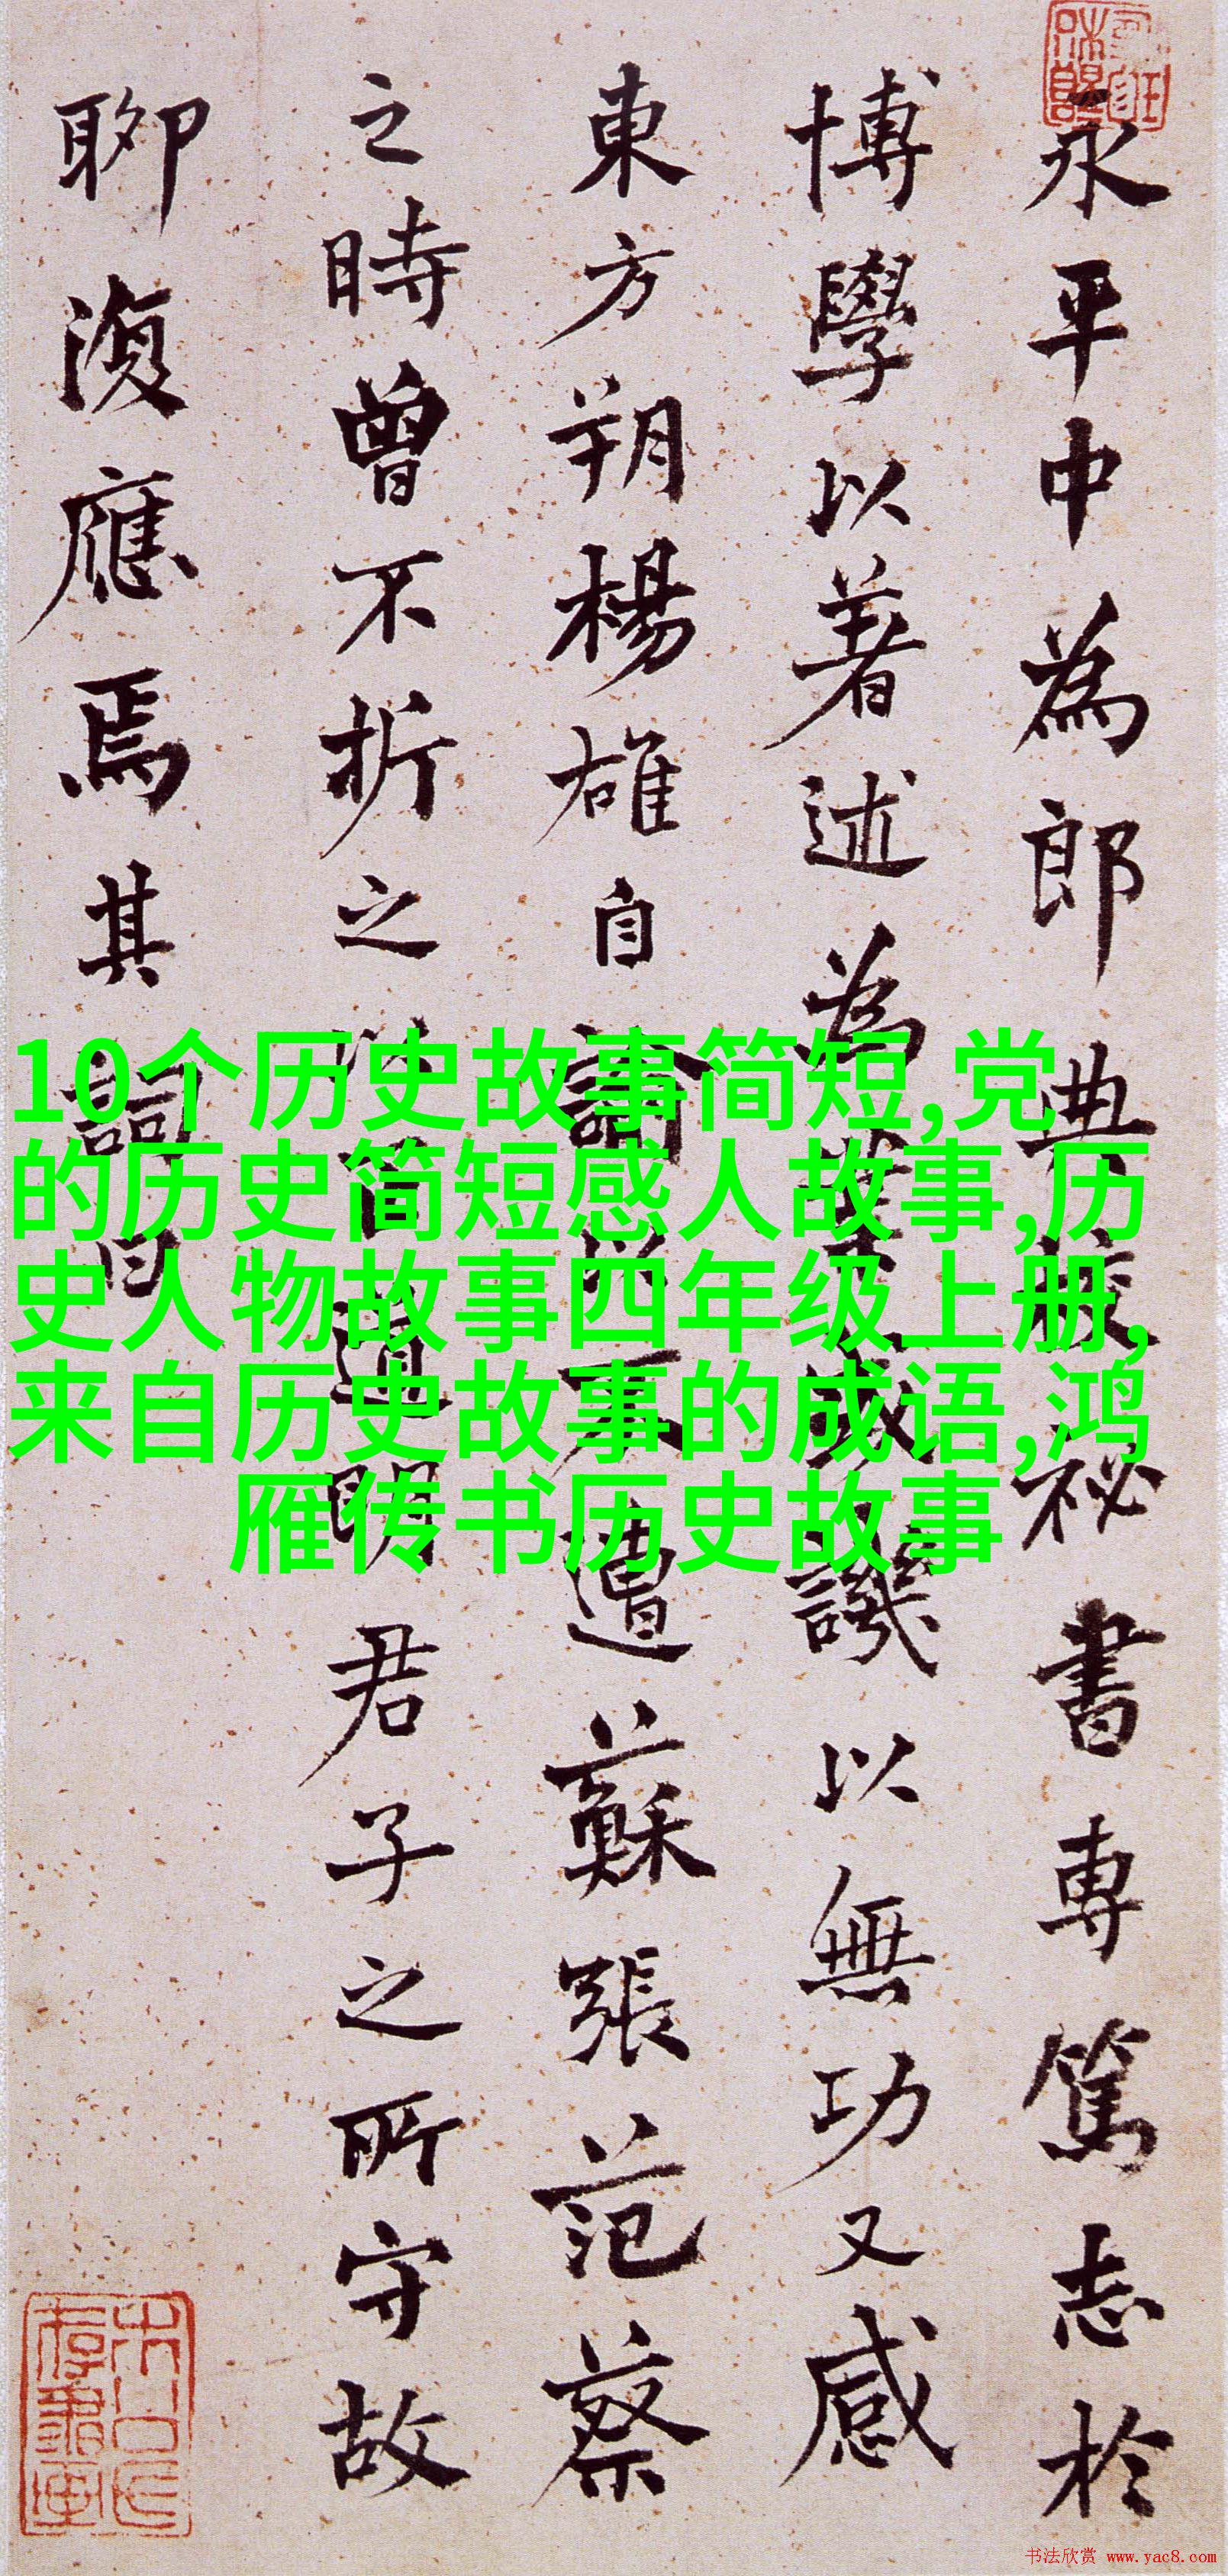 永平中為郎典校祕書專篤志於
博學以著述為業或譏以無功又感
東方朔楊雄自諭以不遭蘇張范蔡
之時曾不折之以正道明君子之所守故
聊復應焉其詞曰
10个历史故事简短,党
的历史简短感人故事,历
史人物故事四年级上册,
来自历史故事的成语,鸿
雁传书历史故事
书法欣赏 www.yac8.com